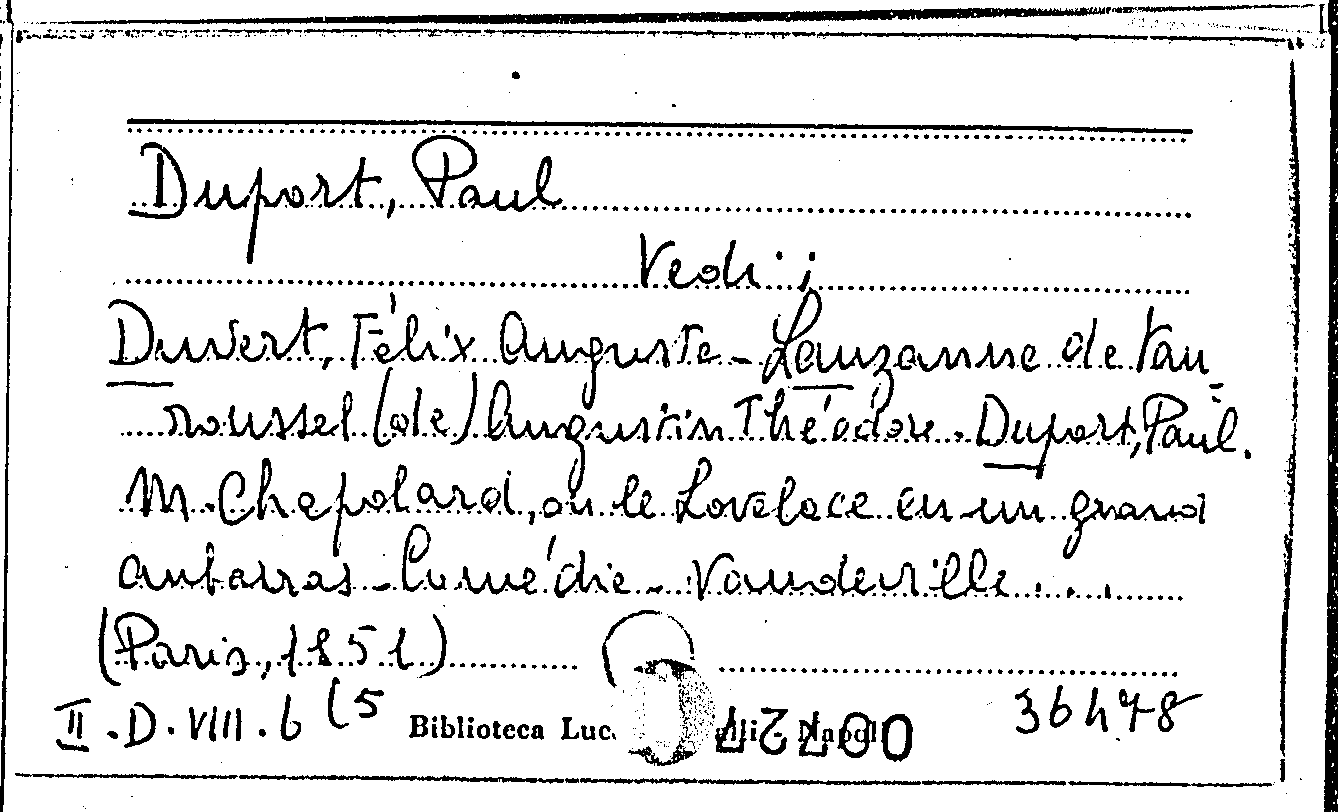 Duport, Paul
Vedi:
Duvert, Félix Auguste - Lauzanne de Vau-
roussel (de) Augustin Théodore. Duport, Paul.
M. Chapolard, ou le Lovelace en un grand
ambarras - Comédie - Vaudeville ...
(Paris, 1851)
II. D. VIII. 6 (5 Biblioteca Luc. Napoli 36478